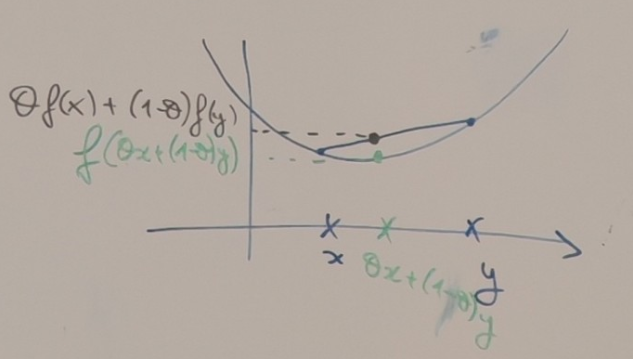 θf(x) + (1-θ)f(y)
f(θx+(1-θ)y)
x
y
θx+(1-θ)y